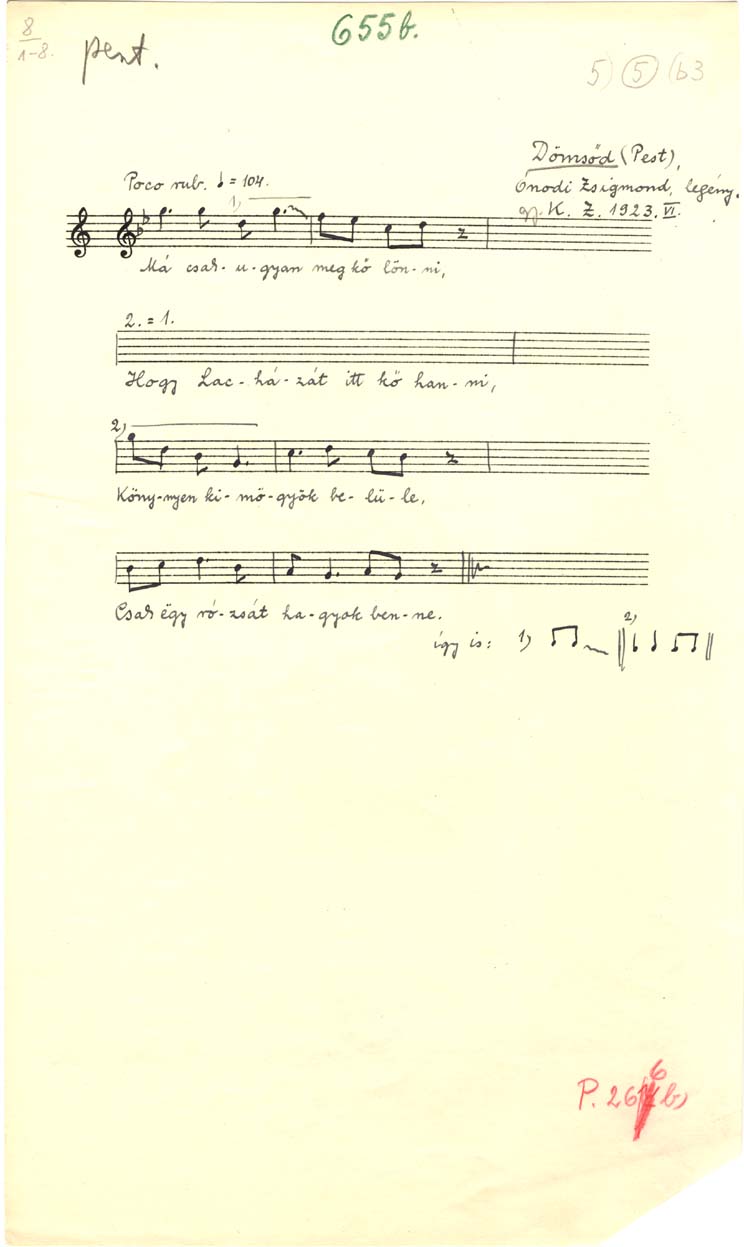 8
1-8.
655b.
pent.
5) 5 (b3
Dömsöd (Pest),
Ónodi Zsigmond, legény.
gy. K. Z. 1923. VI.
Poco rub. ♩ = 104.
1)
Má csak-u-gyan meg kő lön-ni,
2. = 1.
Hogy Lac-há-zát itt kő han-ni,
2)
Köny-nyen ki-mö-gyök be-lü-le,
Csak ëgy ró-zsát ha-gyok ben-ne.
így is: 1) 2)
P. 266 b)